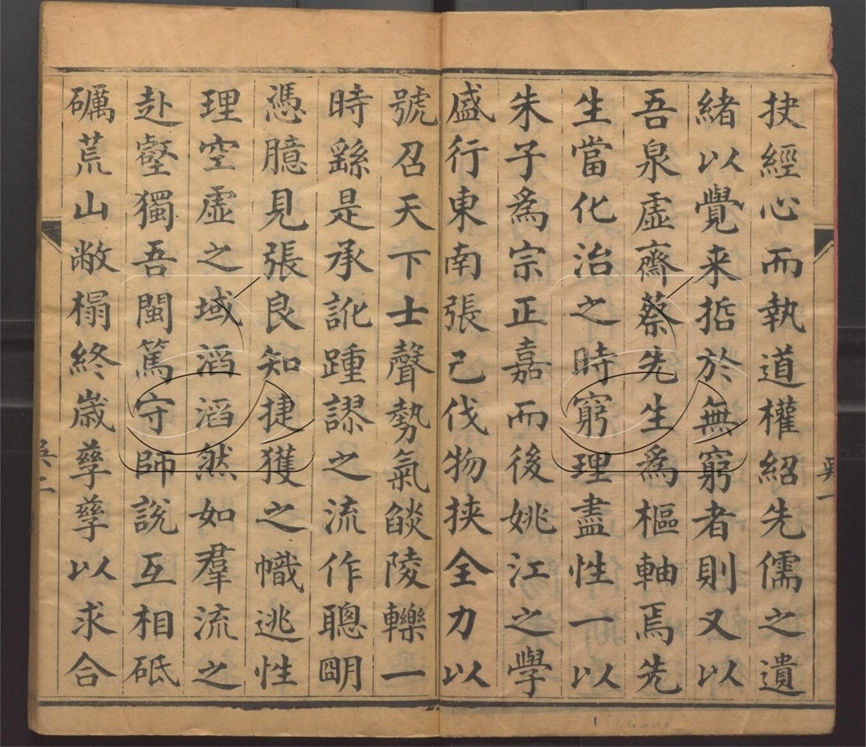 抉經心而執道權紹先儒之遺
緒以覺来哲於無窮者則又以
吾泉虛齋蔡先生爲樞軸焉先
生當化治之時窮理盡性一以
朱子爲宗正嘉而後姚江之學
盛行東南張己伐物挾全力以
號召天下士聲勢氣燄陵轢一
時繇是承訛踵謬之流作聰明
憑臆見張良知捷獲之幟逃性
理空虛之域滔滔然如羣流之
赴壑獨吾閩篤守師說互相砥
礪荒山敝榻終歲孳孳以求合
吳一
吳二